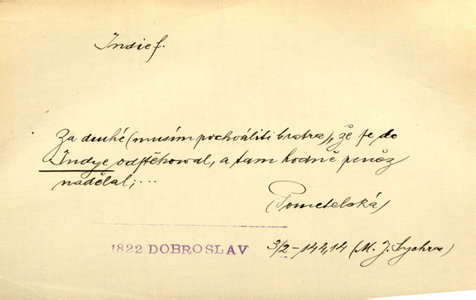 Indief.
Za druhé (musím pochváliti bratra), že se do
Indye odstěhoval, a tam hodně peněz
nadělal;...
(Pometelská)
1822 DOBROSLAV 3/2-144,14 (M. J. Sychra)